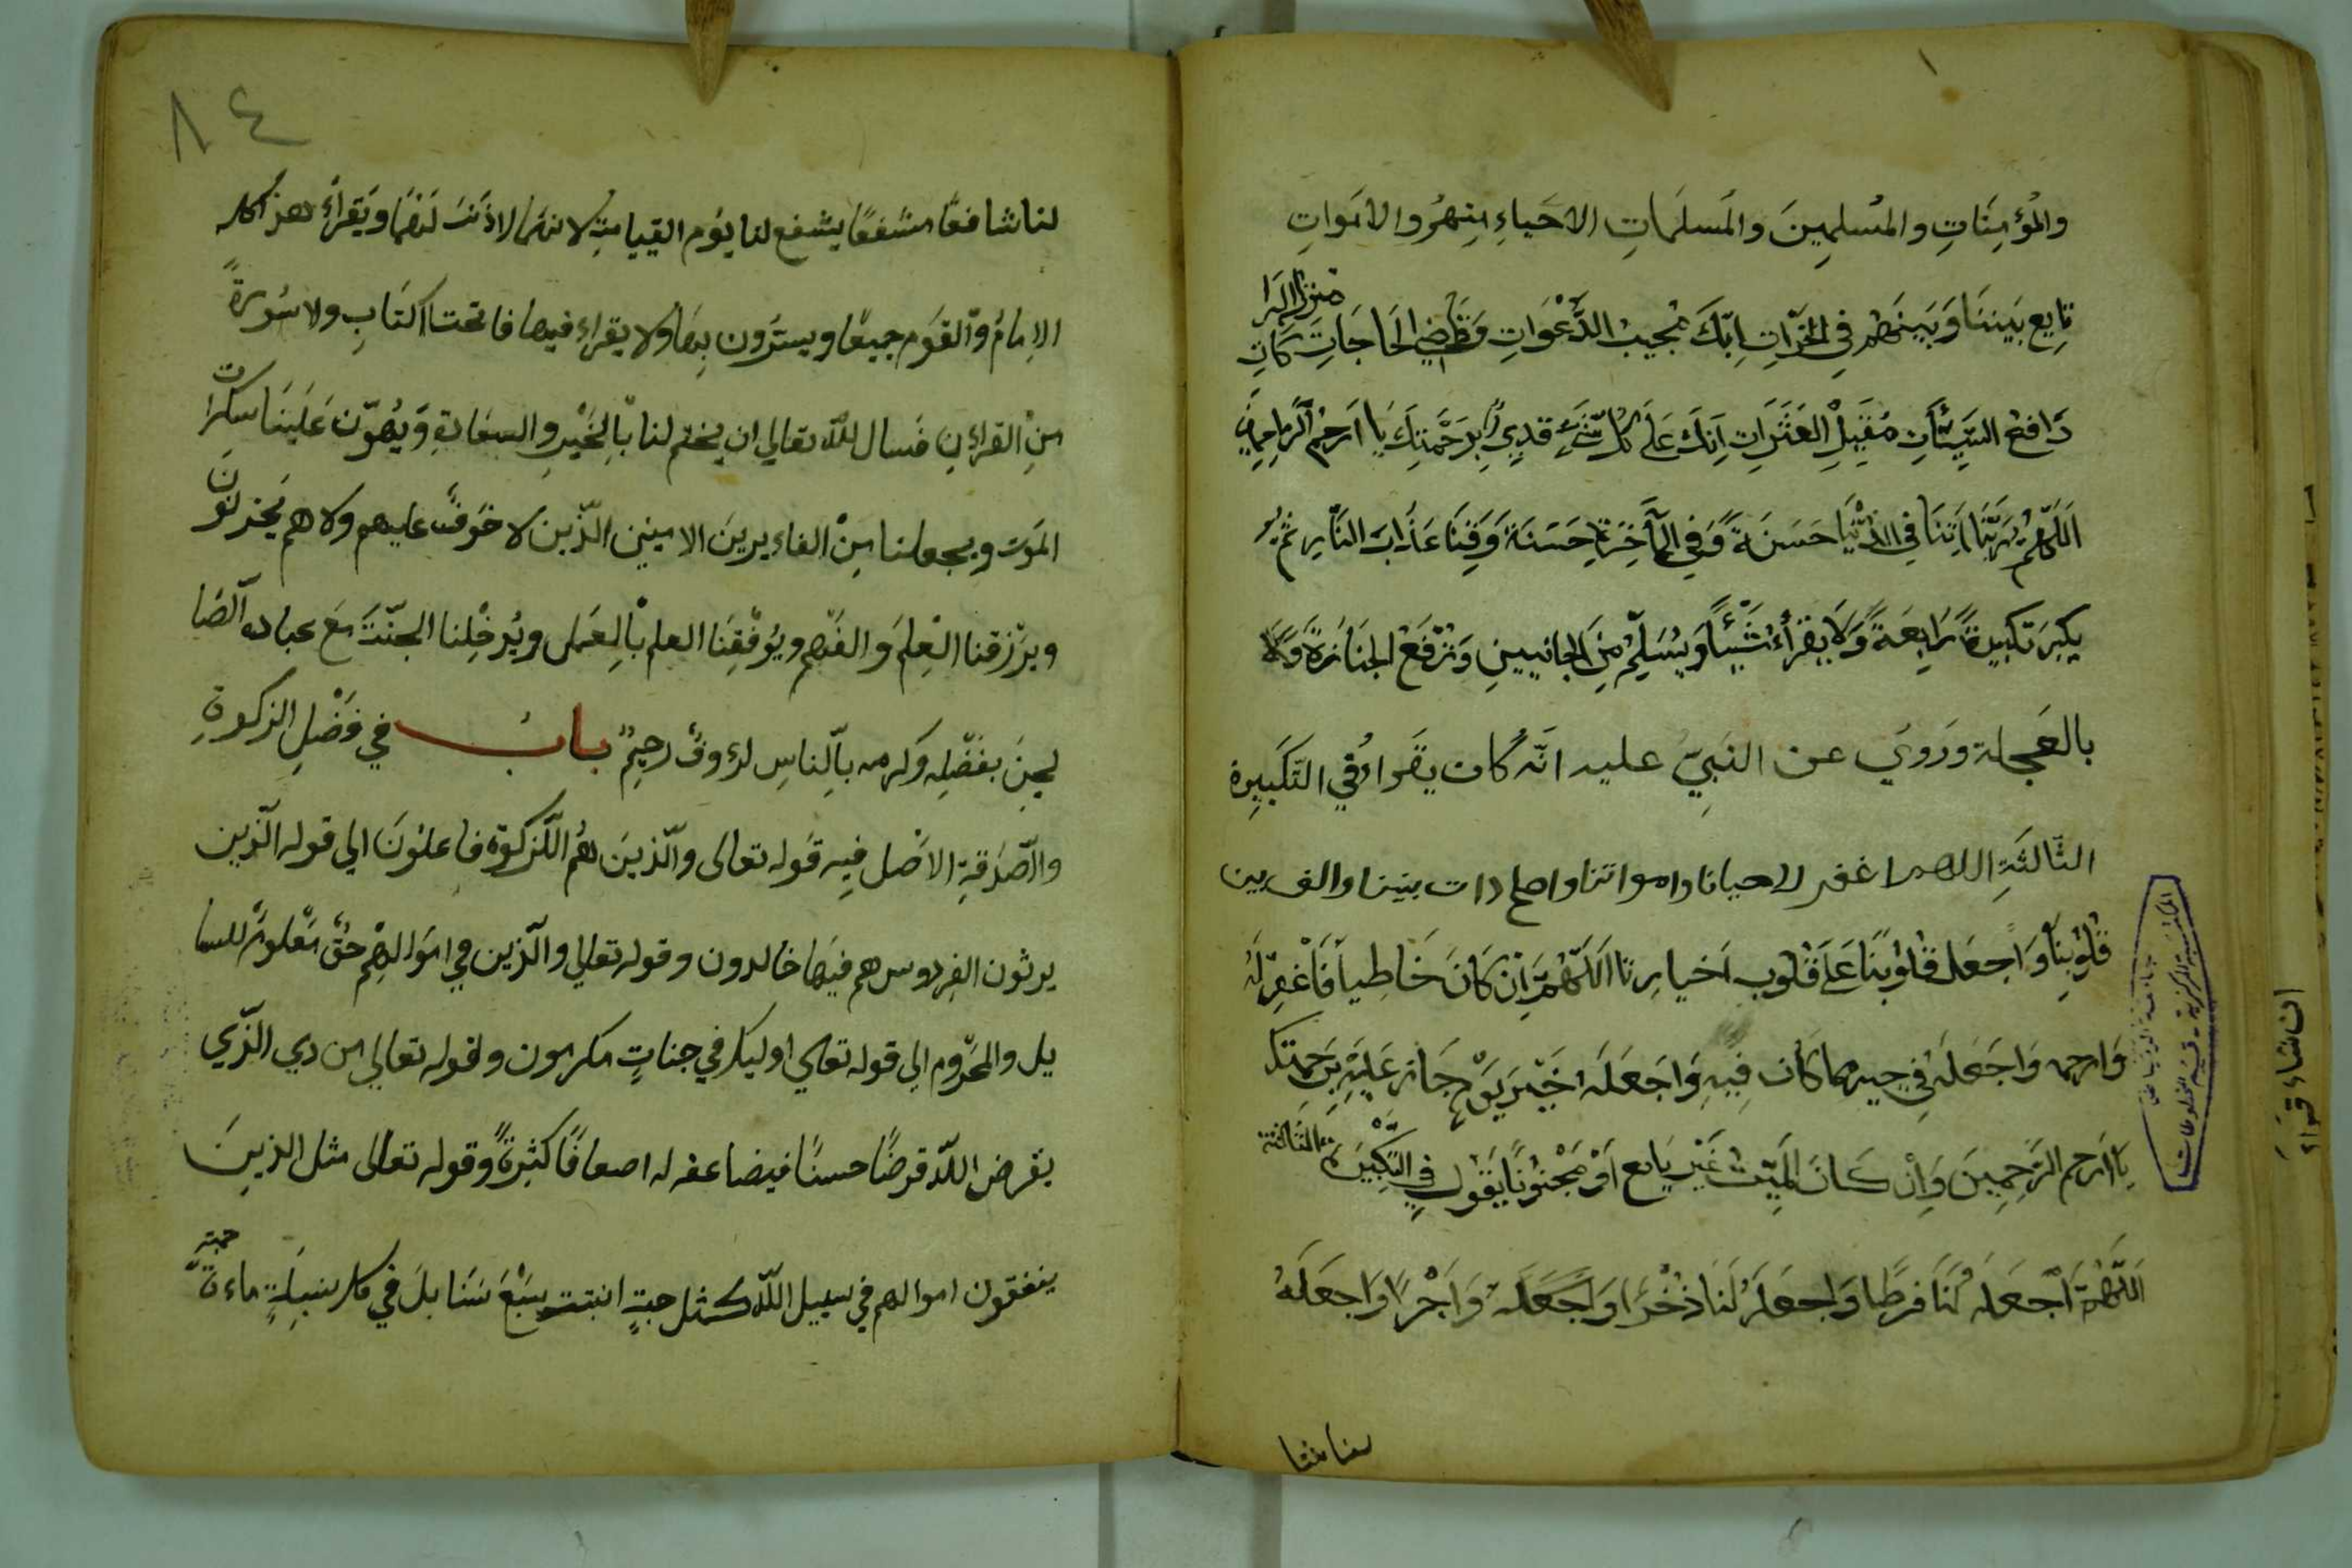 والمُؤمِنَاتِ والمُسلمِينَ والمُسلمَاتِ الاحَياءِ مِنهُم والاموَاتِ
تابِع بَينَنَا وَبَينَهُم فِي الخَيرَاتِ اِنّكَ مُجيبُ الدَّعْوَاتِ وَقاضِي الحَاجَاتِ منزل البركات
دَافِعُ السَيِّئاتِ مُقِيلُ العَثَرَاتِ اِنَكَ عَلَى كُلِّ شَيءٍ قدِيرٌ بِرَحْمَتِكَ يَا اَرحَمَ الرّاحِمِينَ
اَللّهُمَ رَبَّنَا اَتِنَا فِي الدُّنْيَا حَسَنَةً وَفِي الآخِرَةِ حَسَنَةً وَقِنَا عَذَابَ النَّارِ ثم
يكبرَ تكبيرَةً رَابِعَةً وَلَا يقرَأُ شَيْئًا وَيُسَلِّم مِنَ الجانِبينِ وَتُرْفَعُ الجنَازَةُ وَلَا
بالعَجلة ورَوي عن النَبِيّ عليه انّه كان يقرأ في التّكَبِيرة
الثّالثَةِ اللهم اغفر لاحيانا وامواتنا واصلح ذات بيننا والف بين
قُلوُبِنَا وَاجعَل قُلوُبنَا عَلَى قُلوُب اَخيارِنا اللّهُمَّ اِنْ كَانَ خَاطِياً فَاغْفِرلَهُ
وَارحمه وَاجَعَلَهُ فِي خير مما كَان فِيهِ وَاجَعَلَه خَيْرَ يَوْمٍ جَاز عَلَيْهِ بِرَحمتك
يَا اَرحم الرَّحِمِينَ وَاِنْ كَانَ المَيِّتُ غَيْر بَالِع اَوْ مَجْنوُنًا يَقوُل فِي التَّكبِيرَة الثالثة
اَللّهُمَّ اَجْعَلهُ لَنَا فرَطًا وَاجعَلهُ لَنَا ذُخْرًا وَاجَعَله وَاَجْرًا وَاجعَلهُ
لنا شا
لنا شافعًا مشفعًا يشفع لنا يوم القيامة لانهما لا ذنب لَهُمَا ويَقرأُ هذا كله
الاِمامُ والقَوم جميعًا ويسترون بِهَا ولا يقراء فيها فاتحت اكتَابِ ولا سُورةً
مِنْ القراءنِ فسال الله تعالى ان يختم لنا بالخَيْرِ والسعَادةِ وَيُهوّن عَلَينَا سكرات
المَوت ويجعلنا مِنْ الفاءيرينَ الامينين الّذين لا خَوفٌ عليهم ولاهم يَحزنون
ويرزقنا العِلمَ والفَهم ويُوفّقنَا العلم بالعَمل ويُدخِلنا الجنّت مَعَ عباده الصّا
لحِينَ بفَضلِه وكرمه بالِناسِ لرءوفٌ رحِيمٌ بابُ في فَضْلِ الزكوةِ
والصّدَقةِ الاصَل فِيه قوله تعالى والّذينَ هُم اللزكوَة فاعلوُنَ الى قوله الّذين
يرثون الفِردوس هم فيَها خالدون وقوله تعالى والّذين في اموَالهِم حَقّ مَعْلومٌ للسا
يل والمحَروم الى قوله تعالى اوليك في جناتٍ مكرمون ولقوله تعالى من ذي الّذي
يقرض اللّه قرضًا حسنًا فيضاعفه له اضعافًا كثيرةً وقوله تعالى مثل الذينَ
ينفقون اموالهم في سبيل اللّه كمثل حبتٍ انبتت سَبْعَ سَنَابلَ في كل سنبلَةٍ ماءة حبة
٨٤
ان شاء